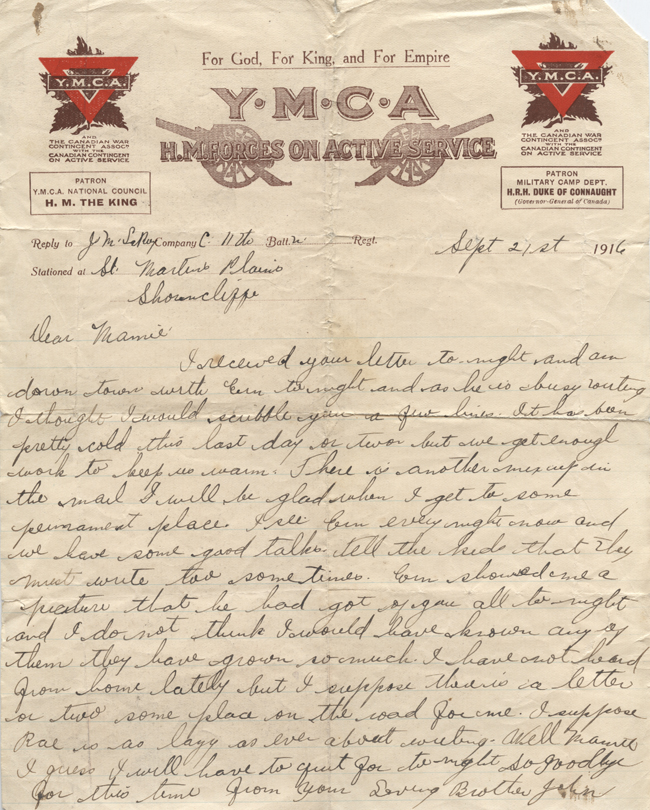 For God, For King, and For Empire
Y·M·C·A
H.M. FORCES ON ACTIVE SERVICE
Y.M.C.A.
AND
THE CANADIAN WAR
CONTINGENT ASSOCN
WITH THE
CANADIAN CONTINGENT
ON ACTIVE SERVICE
PATRON
Y.M.C.A. NATIONAL COUNCIL
H. M. THE KING
Y.M.C.A.
AND
THE CANADIAN WAR
CONTINGENT ASSOCN
WITH THE
CANADIAN CONTINGENT
ON ACTIVE SERVICE
PATRON
MILITARY CAMP DEPT.
H.R.H. DUKE OF CONNAUGHT
(Governor-General of Canada)
Reply to J M Company C 11th Batt. Regt. Sept 21st 1916
Stationed at St. Martins Plains
Shorncliffe
Dear Mamie
I received your letter to-night and am
down town with Ern to night and as he is busy writing
I thought I would scribble you a few lines. It has been
pretty cold this last day or two but we get enough
work to keep us warm. There is another mix up in
the mail I will be glad when I get to some
permanent place. I see Ern every night now and
we have some good talks. tell the kids that they
must write too sometimes. Ern showed me a
picture that he had got of you all to-night
and I do not think I would have known any of
them they have grown so much. I have not heard
from home lately but I suppose there is a letter
or two some place on the road for me. I suppose
Rae is as lazy as ever about writing. Well Mamie
I guess I will have to quit for to-night so Goodbye
for this time from Your Loving Brother John